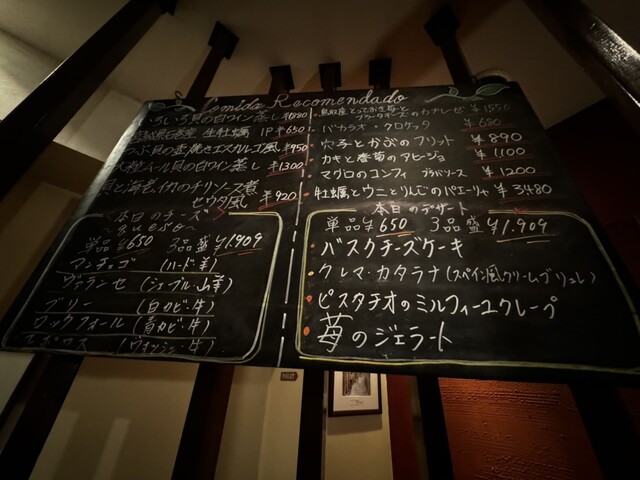 Comida Recomendado
白ワイン蒸し ¥680
生牡蠣 1P ¥650
つぶ貝の壺焼きエスカルゴ風 ¥950
ムール貝の白ワイン蒸し ¥1,300
貝と海老、イカのチリソース煮
セウタ風 ¥920
本日のチーズ
~queso~
単品¥650 3品盛¥1,909
マンチェゴ (ハード・羊)
ヴァランセ (シェーブル・山羊)
ブリー (白カビ・牛)
ロックフォール (青カビ・羊)
エポワス (ウォッシュ・牛)
¥1550
バカラオ・クロケッタ ¥680
穴子とかぶのフリット ¥890
カキと春菊のアヒージョ ¥1100
マグロのコンフィ ¥1200
牡蠣とウニとりんごのパエリャ ¥3480
本日のデザート
単品¥650 3品盛¥1,909
・バスクチーズケーキ
・クレマ・カタラナ(スペイン風クリームブリュレ)
・ピスタチオのミルフィーユクレープ
・苺のジェラート